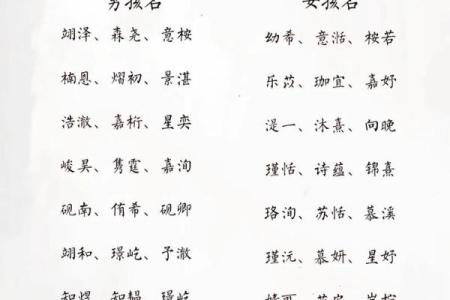 男孩名 女孩名
翊泽、森尧、意桉 幼希、意湉、桉若
楠恩、熠初、景湛 乐苡、珈宜、嘉妤
浩澈、嘉桁、星奕 湜一、沐熹、向晚
峻昊、隽霆、嘉洵 瑾恬、诗蕴、锦熹
砚南、侑希、砚卿 珞洵、苏恬、慕溪
翊和、璟屹、予澈 瑾沅、慕妍、星妤
知煜、知韫、璟屹